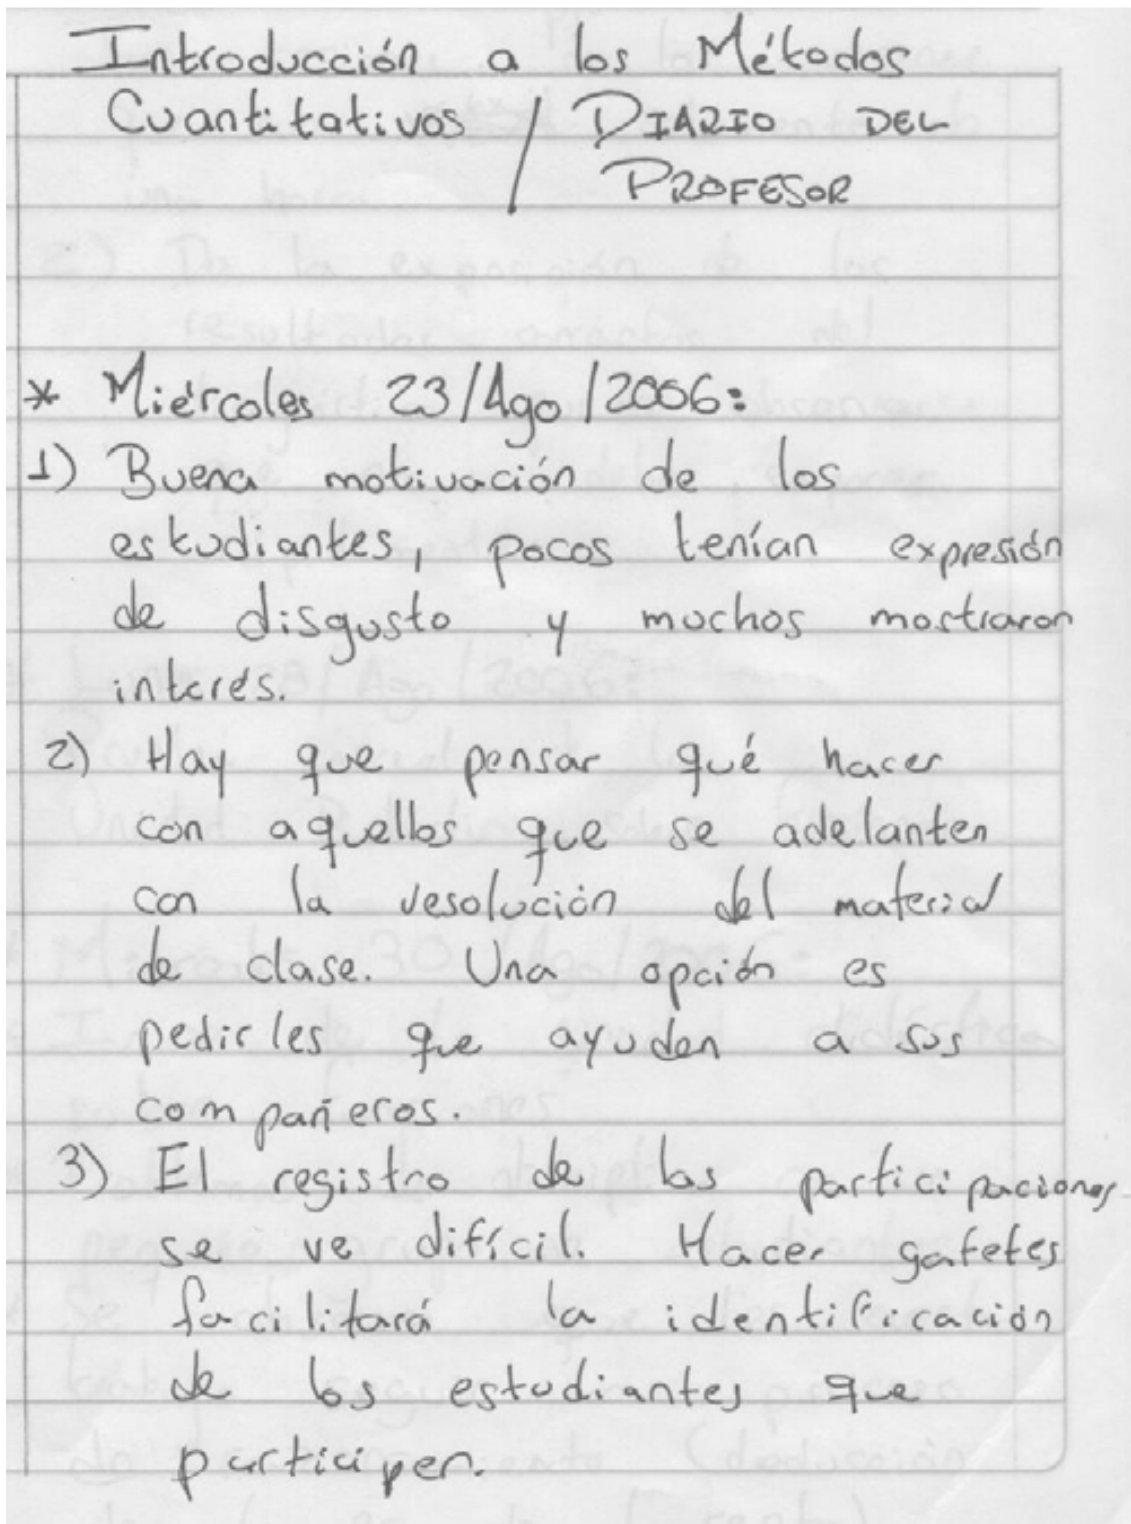 Introducción a los Métodos
Cuantitativos / DIARIO DEL
PROFESOR
* Miércoles 23/Ago/2006:
1) Buena motivación de los
estudiantes, pocos tenían expresión
de disgusto y muchos mostraron
interés.
2) Hay que pensar qué hacer
con aquellos que se adelanten
con la resolución del material
de clase. Una opción es
pedirles que ayuden a sus
compañeros.
3) El registro de las participaciones
se ve difícil. Hacer gafetes
facilitará la identificación
de los estudiantes que
participen.